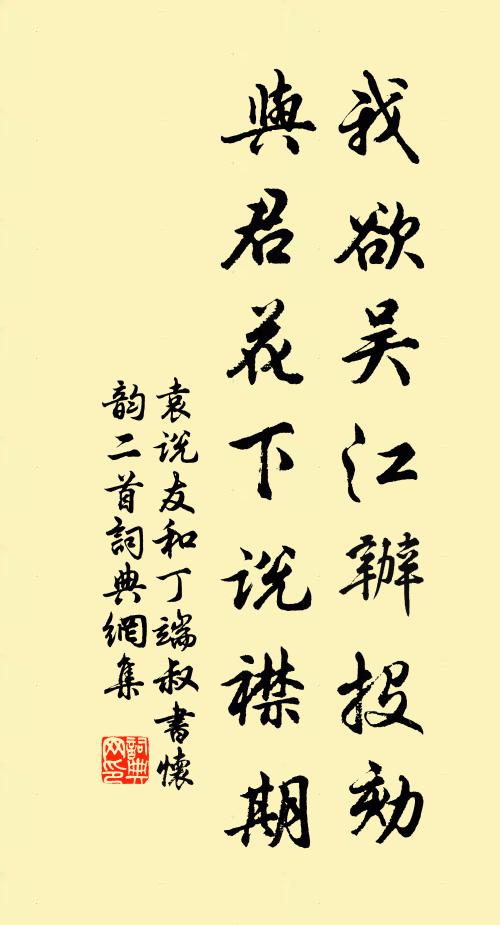 我欲吴江辦投劾
與君花下説襟期
袁説友和丁端叔書懷
韵二首詞典網集
詞典
网印